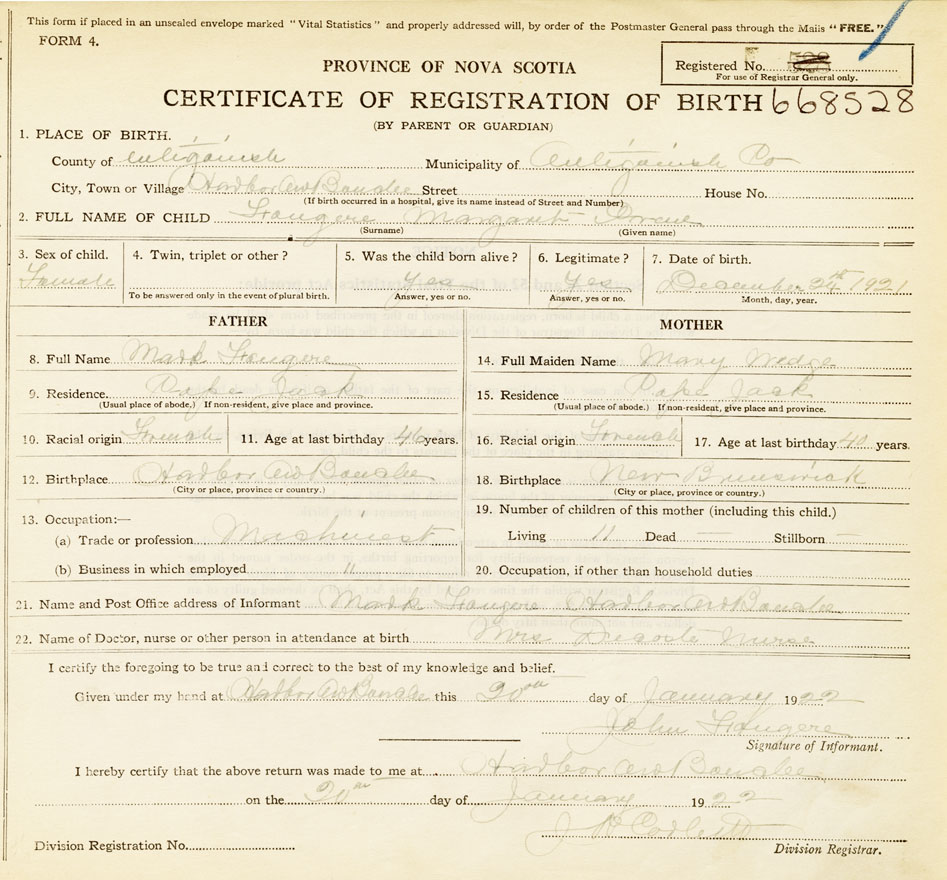 This form if placed in an unsealed envelope marked "Vital Statistics" and properly addressed will, by order of the Postmaster General pass through the Mails "FREE."
FORM 4.
Registered No.
For use of Registrar General only.
PROVINCE OF NOVA SCOTIA
CERTIFICATE OF REGISTRATION OF BIRTH 668528
(BY PARENT OR GUARDIAN)
1. PLACE OF BIRTH.
County of Antigonish Municipality of Antigonish Co
City, Town or Village Harbor Au Bouche Street House No.
(If birth occurred in a hospital, give its name instead of Street and Number)
2. FULL NAME OF CHILD Fougere Margaret
(Surname) (Given name)
3. Sex of child. 4. Twin, triplet or other? 5. Was the child born alive? 6. Legitimate? 7. Date of birth.
Female Yes Yes December 24th 1921
To be answered only in the event of plural birth. Answer, yes or no. Answer, yes or no. Month, day, year.
FATHER MOTHER
8. Full Name Mark Fougere 14. Full Maiden Name Mary Wedge
9. Residence Cape Jack 15. Residence Cape Jack
(Usual place of abode.) If non-resident, give place and province. (Usual place of abode.) If non-resident, give place and province.
10. Racial origin French 11. Age at last birthday 46 years. 16. Racial origin French 17. Age at last birthday 40 years.
12. Birthplace Harbor Au Bouche 18. Birthplace New Brunswick
(City or place, province or country.) (City or place, province or country.)
13. Occupation:— 19. Number of children of this mother (including this child.)
(a) Trade or profession Living 11 Dead — Stillborn —
(b) Business in which employed " 20. Occupation, if other than household duties
21. Name and Post Office address of Informant Mark Fougere Harbor Au Bouche
22. Name of Doctor, nurse or other person in attendance at birth Mrs Decoste Nurse
I certify the foregoing to be true and correct to the best of my knowledge and belief.
Given under my hand at Harbor Au Bouche this 20th day of January 1922
John Fougere
Signature of Informant.
I hereby certify that the above return was made to me at Harbor Au Bouche
on the 20th day of January 1922
Division Registration No.
Division Registrar.